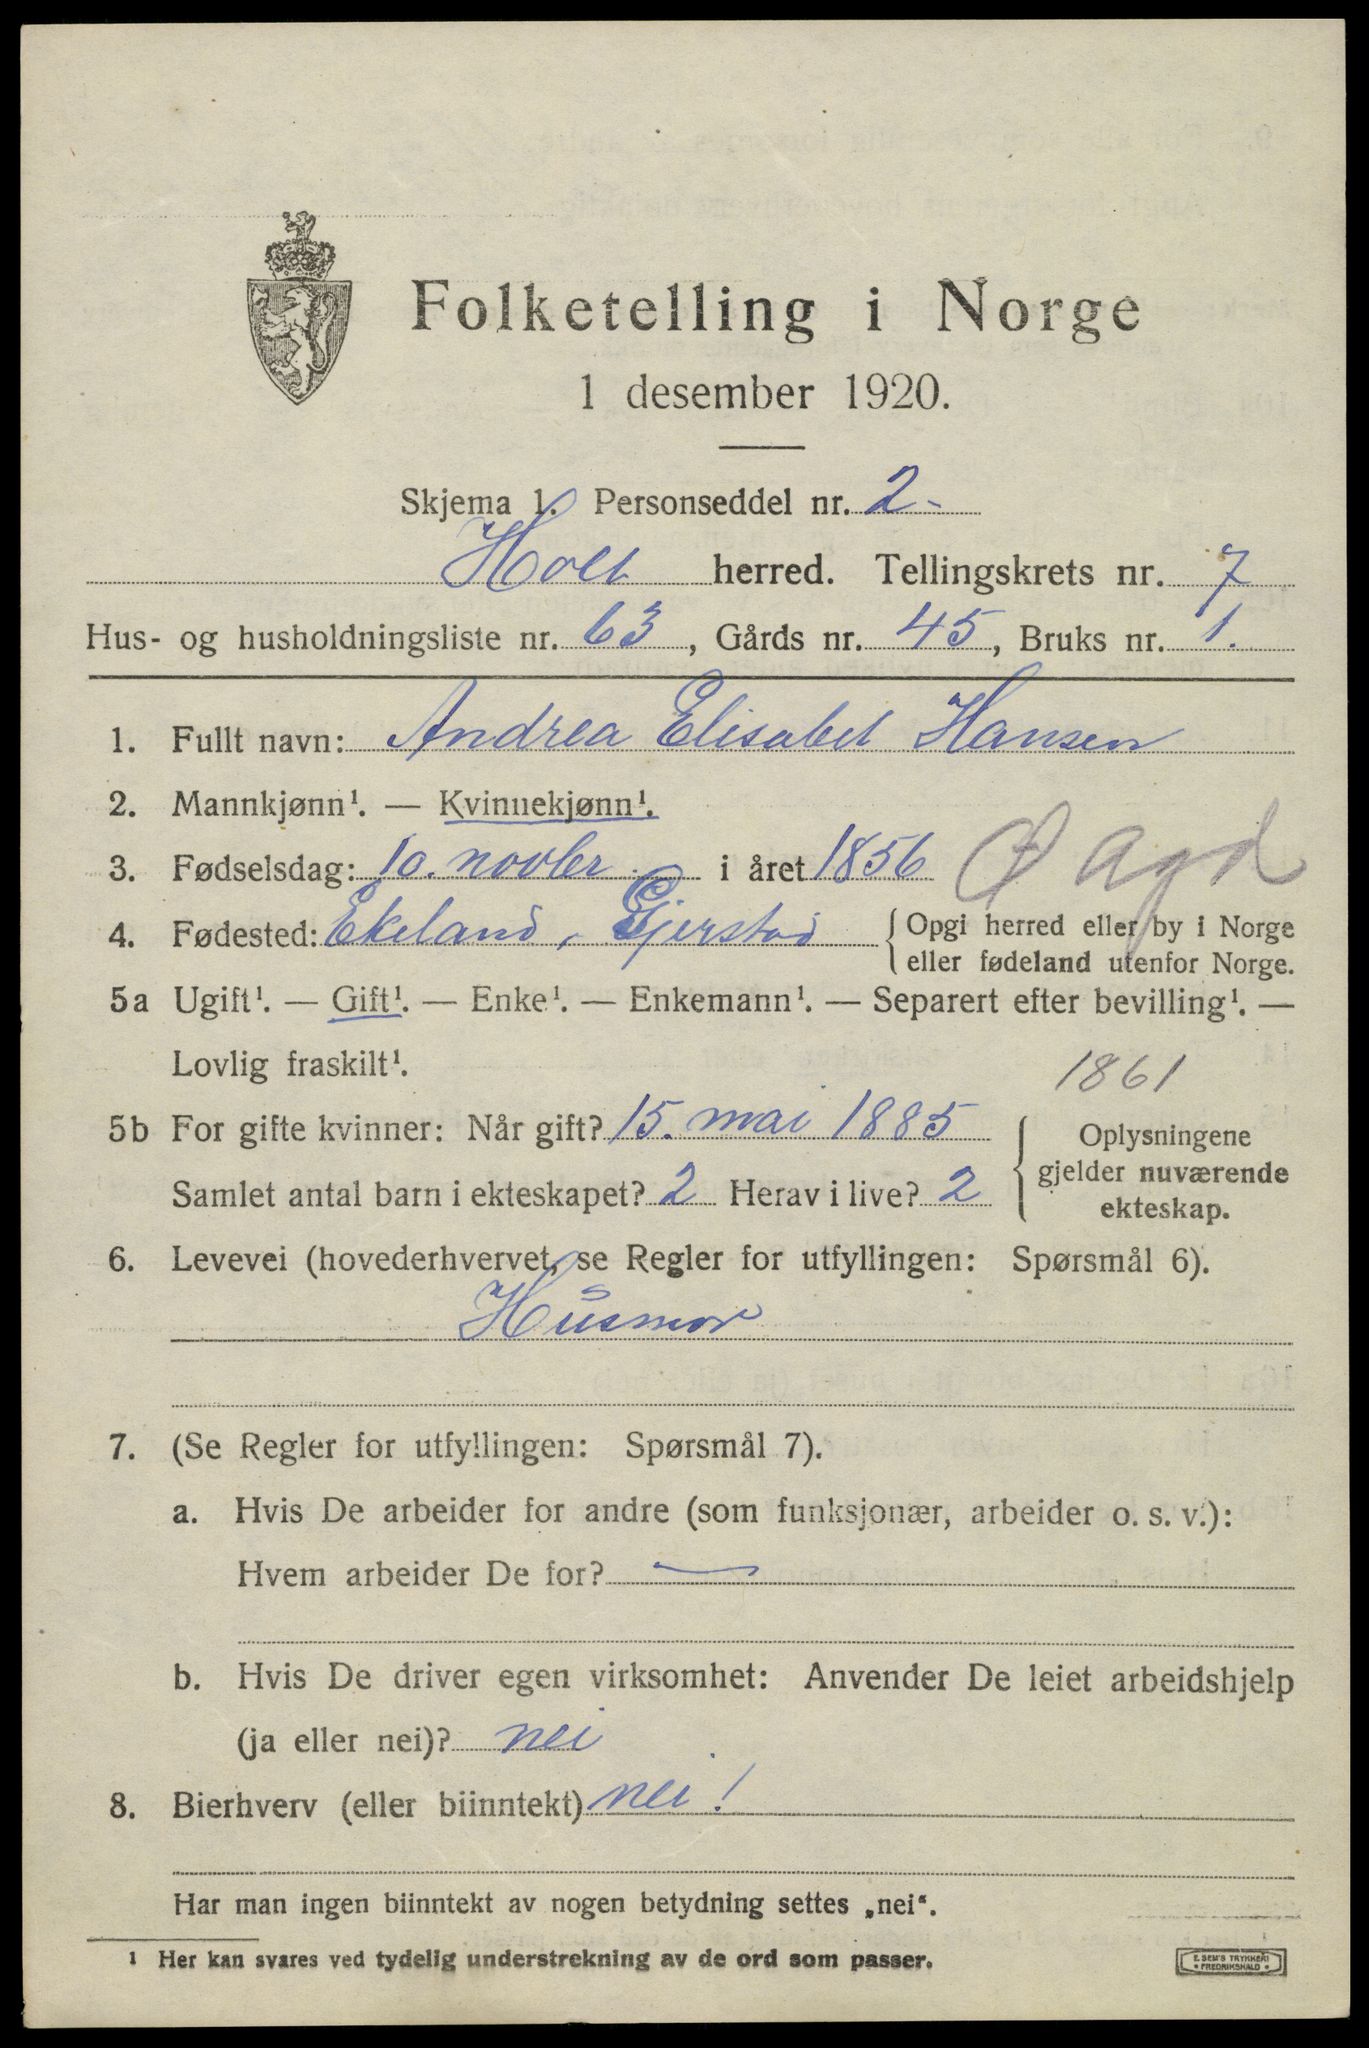 Folketelling i Norge
1 desember 1920.
Skjema 1. Personseddel nr. 2-
Holt herred. Tellingskrets nr. 7
Hus- og husholdningsliste nr. 63, Gårds nr. 45, Bruks nr. 1.
1. Fullt navn: Andrea Elisabet Hansen
2. Mannkjønn¹. — Kvinnekjønn¹.
3. Fødselsdag: 10. novber i året 1856 Ø Agd
4. Fødested: Ekeland, Gjerstad { Opgi herred eller by i Norge
eller fødeland utenfor Norge.
5a Ugift¹. — Gift¹. — Enke¹. — Enkemann¹. — Separert efter bevilling¹. —
Lovlig fraskilt¹. 1861
5b For gifte kvinner: Når gift? 15. mai 1885 { Oplysningene
gjelder nuværende
Samlet antal barn i ekteskapet? 2 Herav i live? 2 ekteskap.
6. Levevei (hovederhvervet, se Regler for utfyllingen: Spørsmål 6).
Husmor
7. (Se Regler for utfyllingen: Spørsmål 7).
a. Hvis De arbeider for andre (som funksjonær, arbeider o. s. v.):
Hvem arbeider De for? —
b. Hvis De driver egen virksomhet: Anvender De leiet arbeidshjelp
(ja eller nei)? nei
8. Bierhverv (eller biinntekt) nei!
Har man ingen biinntekt av nogen betydning settes „nei“.
¹ Her kan svares ved tydelig understrekning av de ord som passer.
E. SEM'S TRYKKERI
• FREDRIKSHALD •